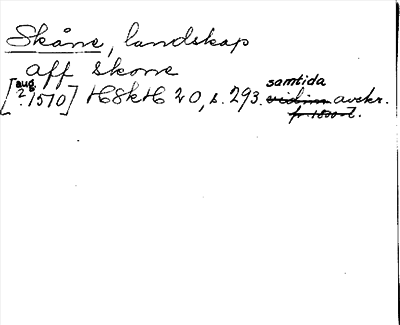 Skåne, landskap
aff Skone
[aug. ? 1570] HSkH 20, s. 293. samtida vidim avskr.
fr 1500-t.